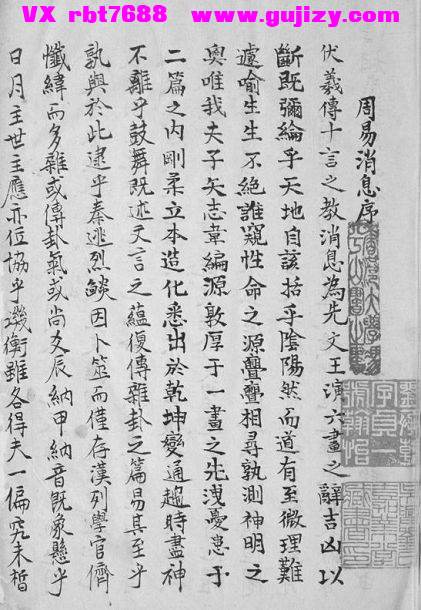 VX rbt7688 www.gujizy.com
周易消息序
伏羲傳十言之教消息為先文王演六畫之辭吉凶以
斷既彌綸乎天地自該括乎陰陽然而道有至微理難
遽喻生生不絶誰窺性命之源亹亹相尋孰測神明之
奧唯我夫子矢志韋編源敦厚于一畫之先洩憂患于
二篇之内剛柔立本造化悉出於乾坤變通趨時盡神
不離乎鼓舞既述文言之蘊復傳雜卦之篇易其至乎
孰與於此逮乎秦逃烈燄因卜筮而僅存漢列學官儕
懺緯而多雜或傳卦氣或尚爻辰納甲納音既象懸乎
日月主世主應亦位協乎璣衡雖各得夫一偏究未晳